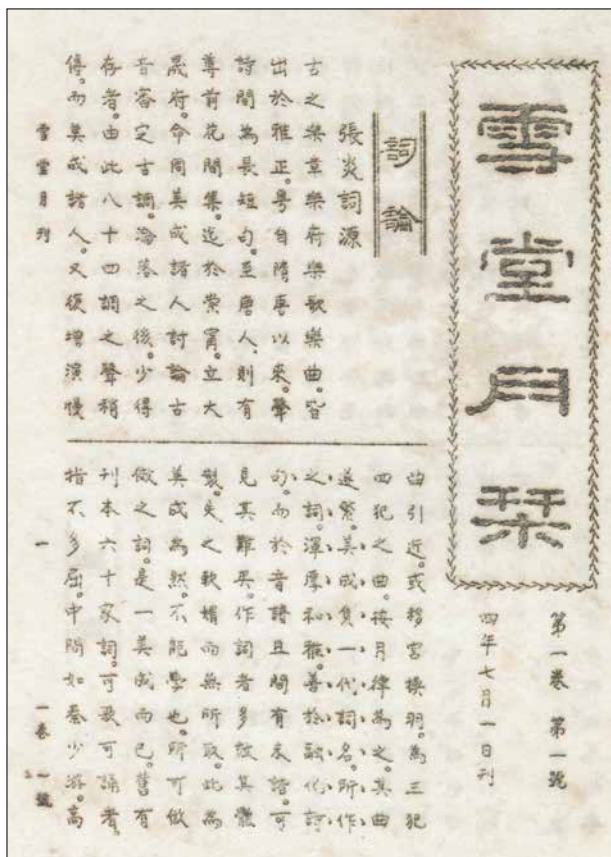 雪堂月栞
第一卷 第一號
四年七月一日刊
詞論
張炎詞源
古之樂章樂府樂歌樂曲。皆
出於雅正。粵自隋唐以來。聲
詩間為長短句。至唐人、則有
尊前花間集。迄於崇甯。立大
晟府。命周美成諸人討論古
音審定古調。淪落之後。少得
存者。由此八十四調之聲稍
傳。而美成諸人。又復增演慢
曲引近。或移宮換羽。為三犯
四犯之曲。按月律為之。其曲
遂繁。美成負一代詞名。所作
之詞。渾厚和雅。善於融化詩
句。而於音譜且間有未諧。可
見其難矣。作詞者多效其體
製。失之軟媚而無所取。此為
美成為然。不能學也。所可倣
倣之詞。是一美成而已。舊有
刊本六十家詞。可歌可誦者。
指不多屈。中間如秦少游。高
雪堂月刊
一
一卷 一號